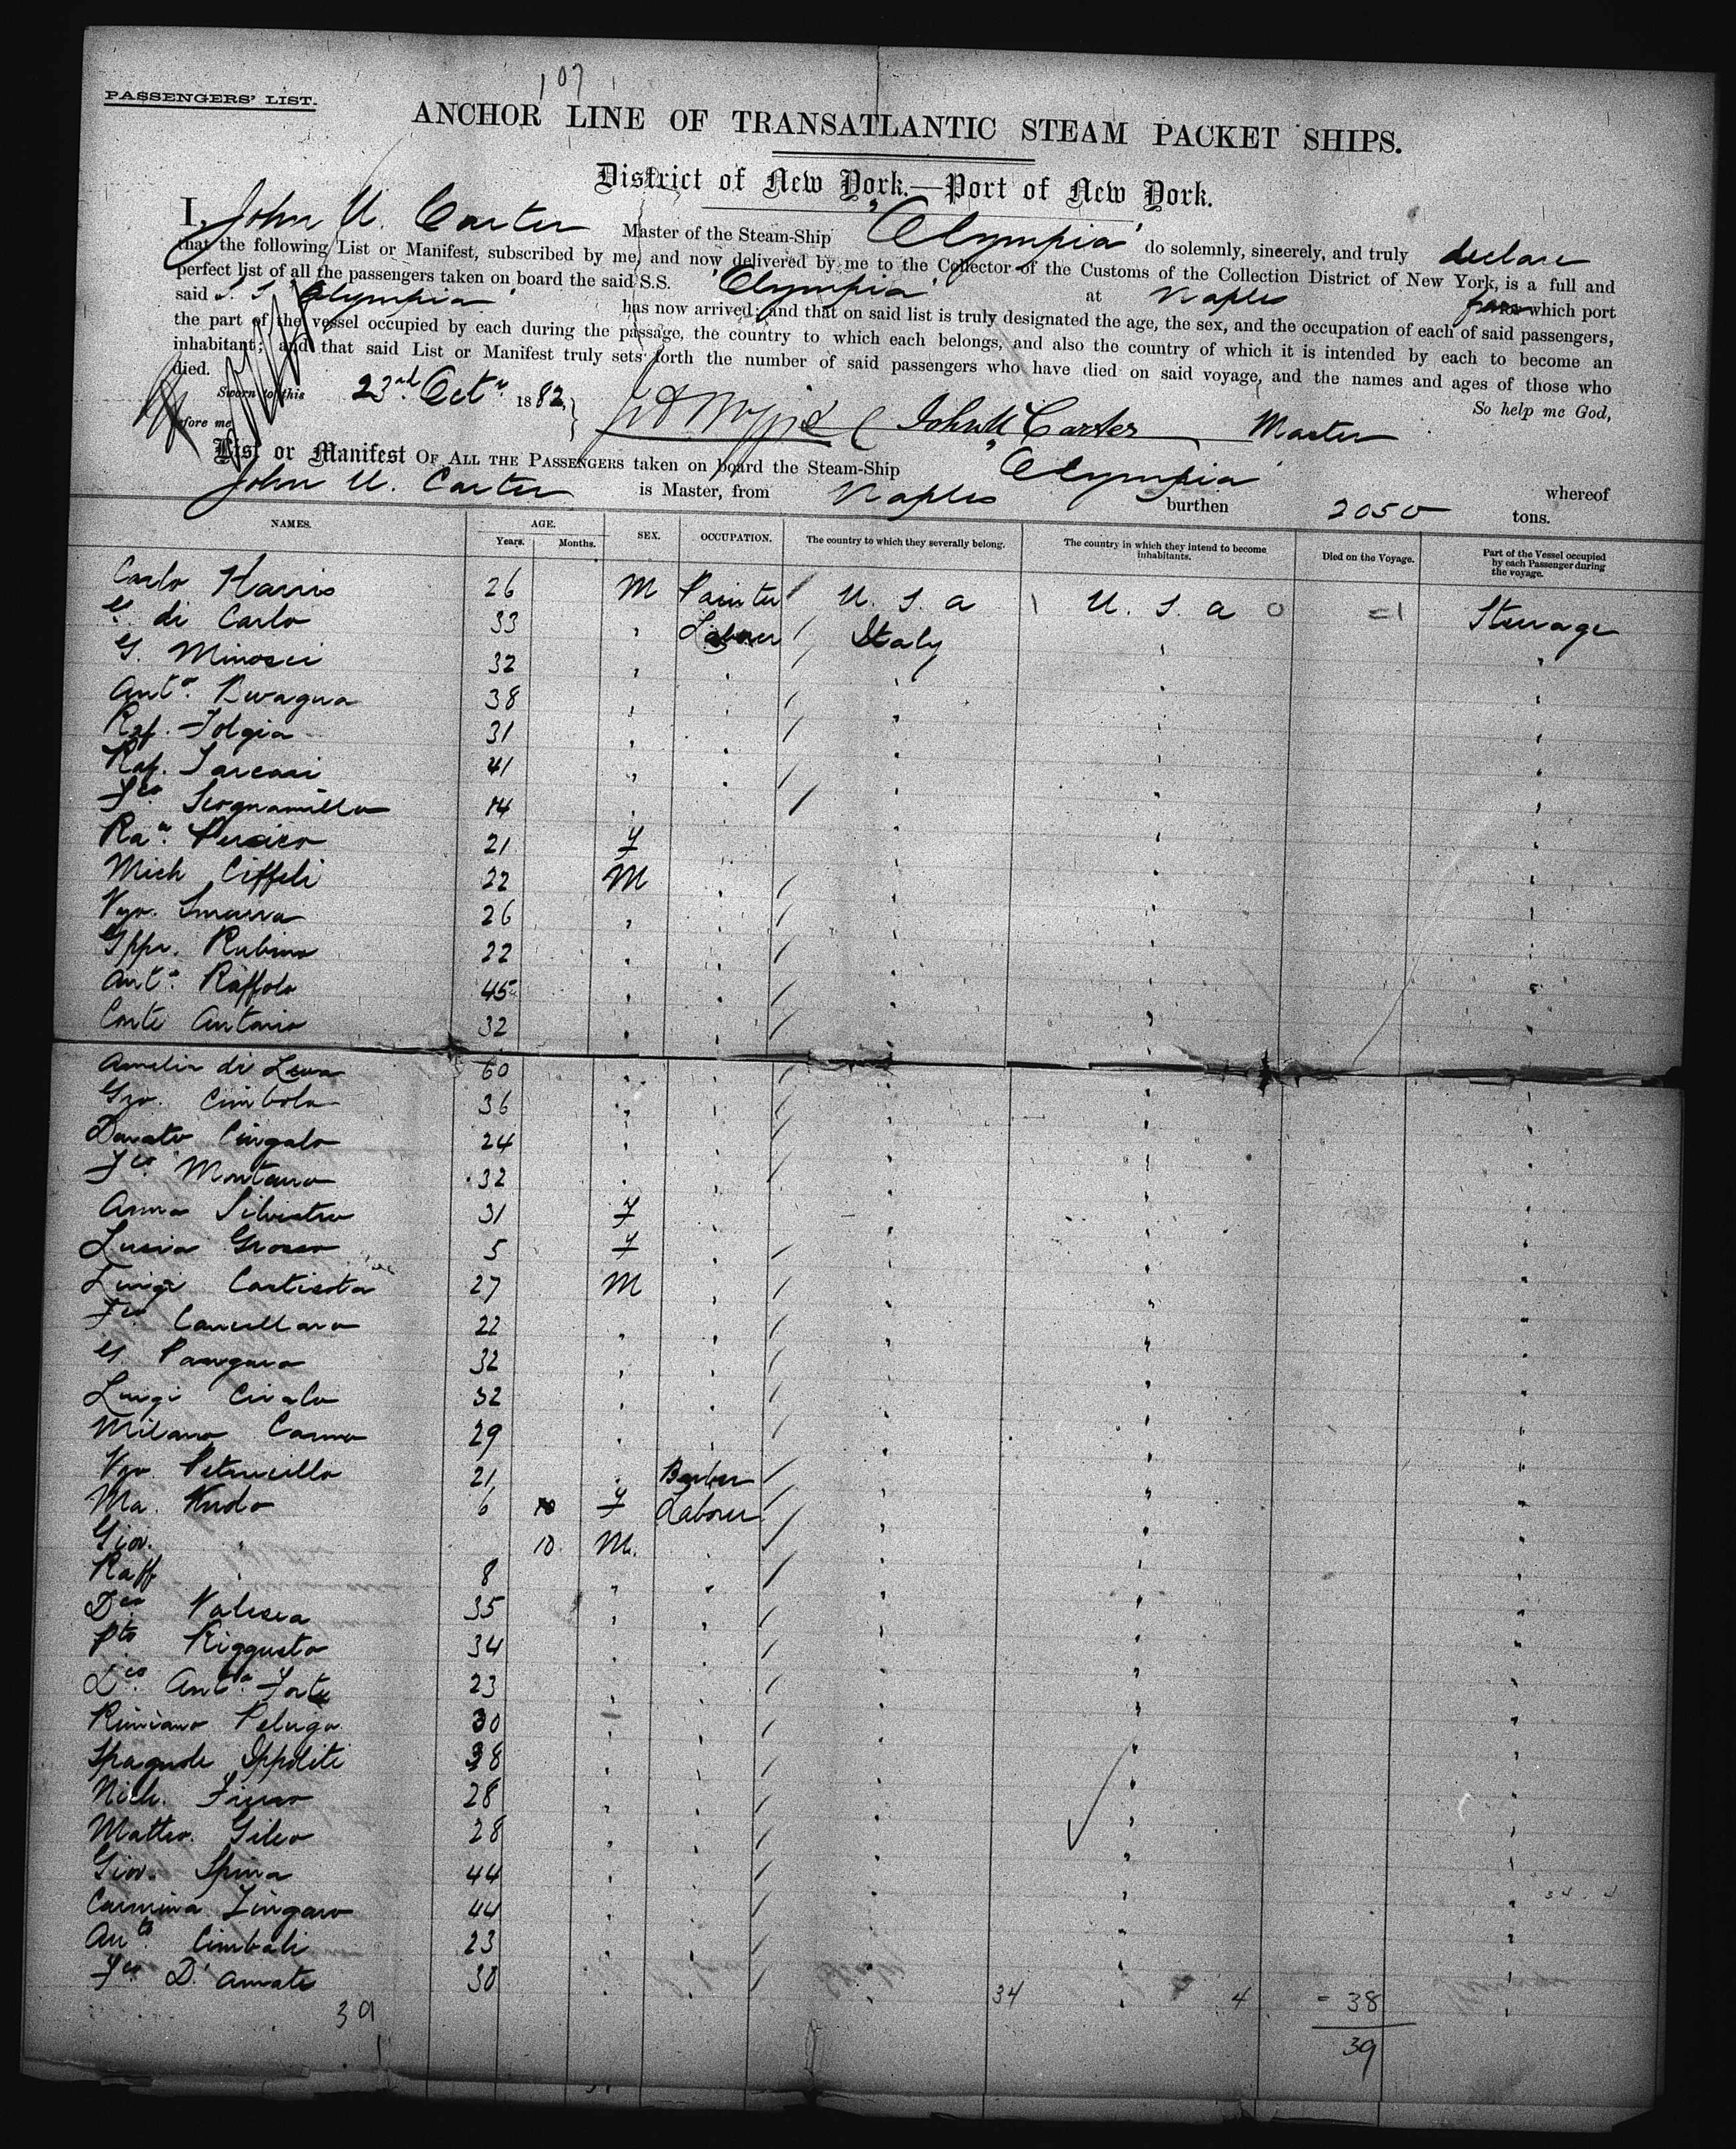 107
PASSENGERS' LIST.
ANCHOR LINE OF TRANSATLANTIC STEAM PACKET SHIPS.
District of New York.—Port of New York.
I, John U. Carter Master of the Steam-Ship "Olympia" do solemnly, sincerely, and truly declare
that the following List or Manifest, subscribed by me, and now delivered by me to the Collector of the Customs of the Collection District of New York, is a full and
perfect list of all the passengers taken on board the said S.S. "Olympia" at Naples from which port
said S. S "Olympia" has now arrived; and that on said list is truly designated the age, the sex, and the occupation of each of said passengers,
the part of the vessel occupied by each during the passage, the country to which each belongs, and also the country of which it is intended by each to become an
inhabitant; and that said List or Manifest truly sets forth the number of said passengers who have died on said voyage, and the names and ages of those who
died. So help me God,
Sworn to this 23rd Octr 1882,
before me John U Carter Master
List or Manifest OF ALL THE PASSENGERS taken on board the Steam-Ship "Olympia" whereof
John U. Carter is Master, from Naples burthen 2050 tons.
NAMES. AGE. Years. Months. SEX. OCCUPATION. The country to which they severally belong. The country in which they intend to become inhabitants. Died on the Voyage. Part of the Vessel occupied by each Passenger during the voyage.
Carlo Harris 26 M Painter U. S. a U. S. a 0 =1 Steerage
G. di Carlo 33 " Labour Italy " "
G. Minosci 32 " " " " "
Anto. 38 " " " " "
Raf. Folgia 31 " " " " "
Raf. 41 " " " " "
Fco Scognamillo 14 " " " " "
Raa. Persico 21 F " " "
Mich Ciffeli 22 M " " " "
Vzo. Smarra 26 " " " " "
Gppe. Rubino 22 " " " " "
Anto. Raffolo 45 " " " " "
Conte Antonio 32 " " " " "
Amelia di Leva 60 " " " " "
Gio. Cimbola 36 " " " " "
Donato Cingalo 24 " " " " "
Fco Montano 32 " " " " "
Anna Silvestro 31 F " " " "
Lucia Grosso 5 F " " " "
Luigi 27 M " " " "
Fco Cancellaro 22 " " " " "
G. 32 " " " " "
Luigi Civalo 32 " " " " "
Milano Carmo 29 " " " " "
Vzo Petruccillo 21 " Barber " " "
Ma. Nudo 6 F Labour " " "
Giov. " 10 M. " " " "
Raff " 8 " " " " "
Dco Valesea 35 " " " " "
Pto Riggusto 34 " " " " "
Lco. Anto. Forte 23 " " " " "
Pelugo 30 " " " " "
Spagnole Ippoliti 38 " " " " "
Nich. Fierro 28 " " " " "
Matteo. Gileo 28 " " " " "
Giov. Spina 44 " " " " "
Carmina Zingaro 44 " " " " "
Anto. Cimbali 23 " " " " "
Fco D'Amato 30 " " " " "
34 4 - 38
39 39